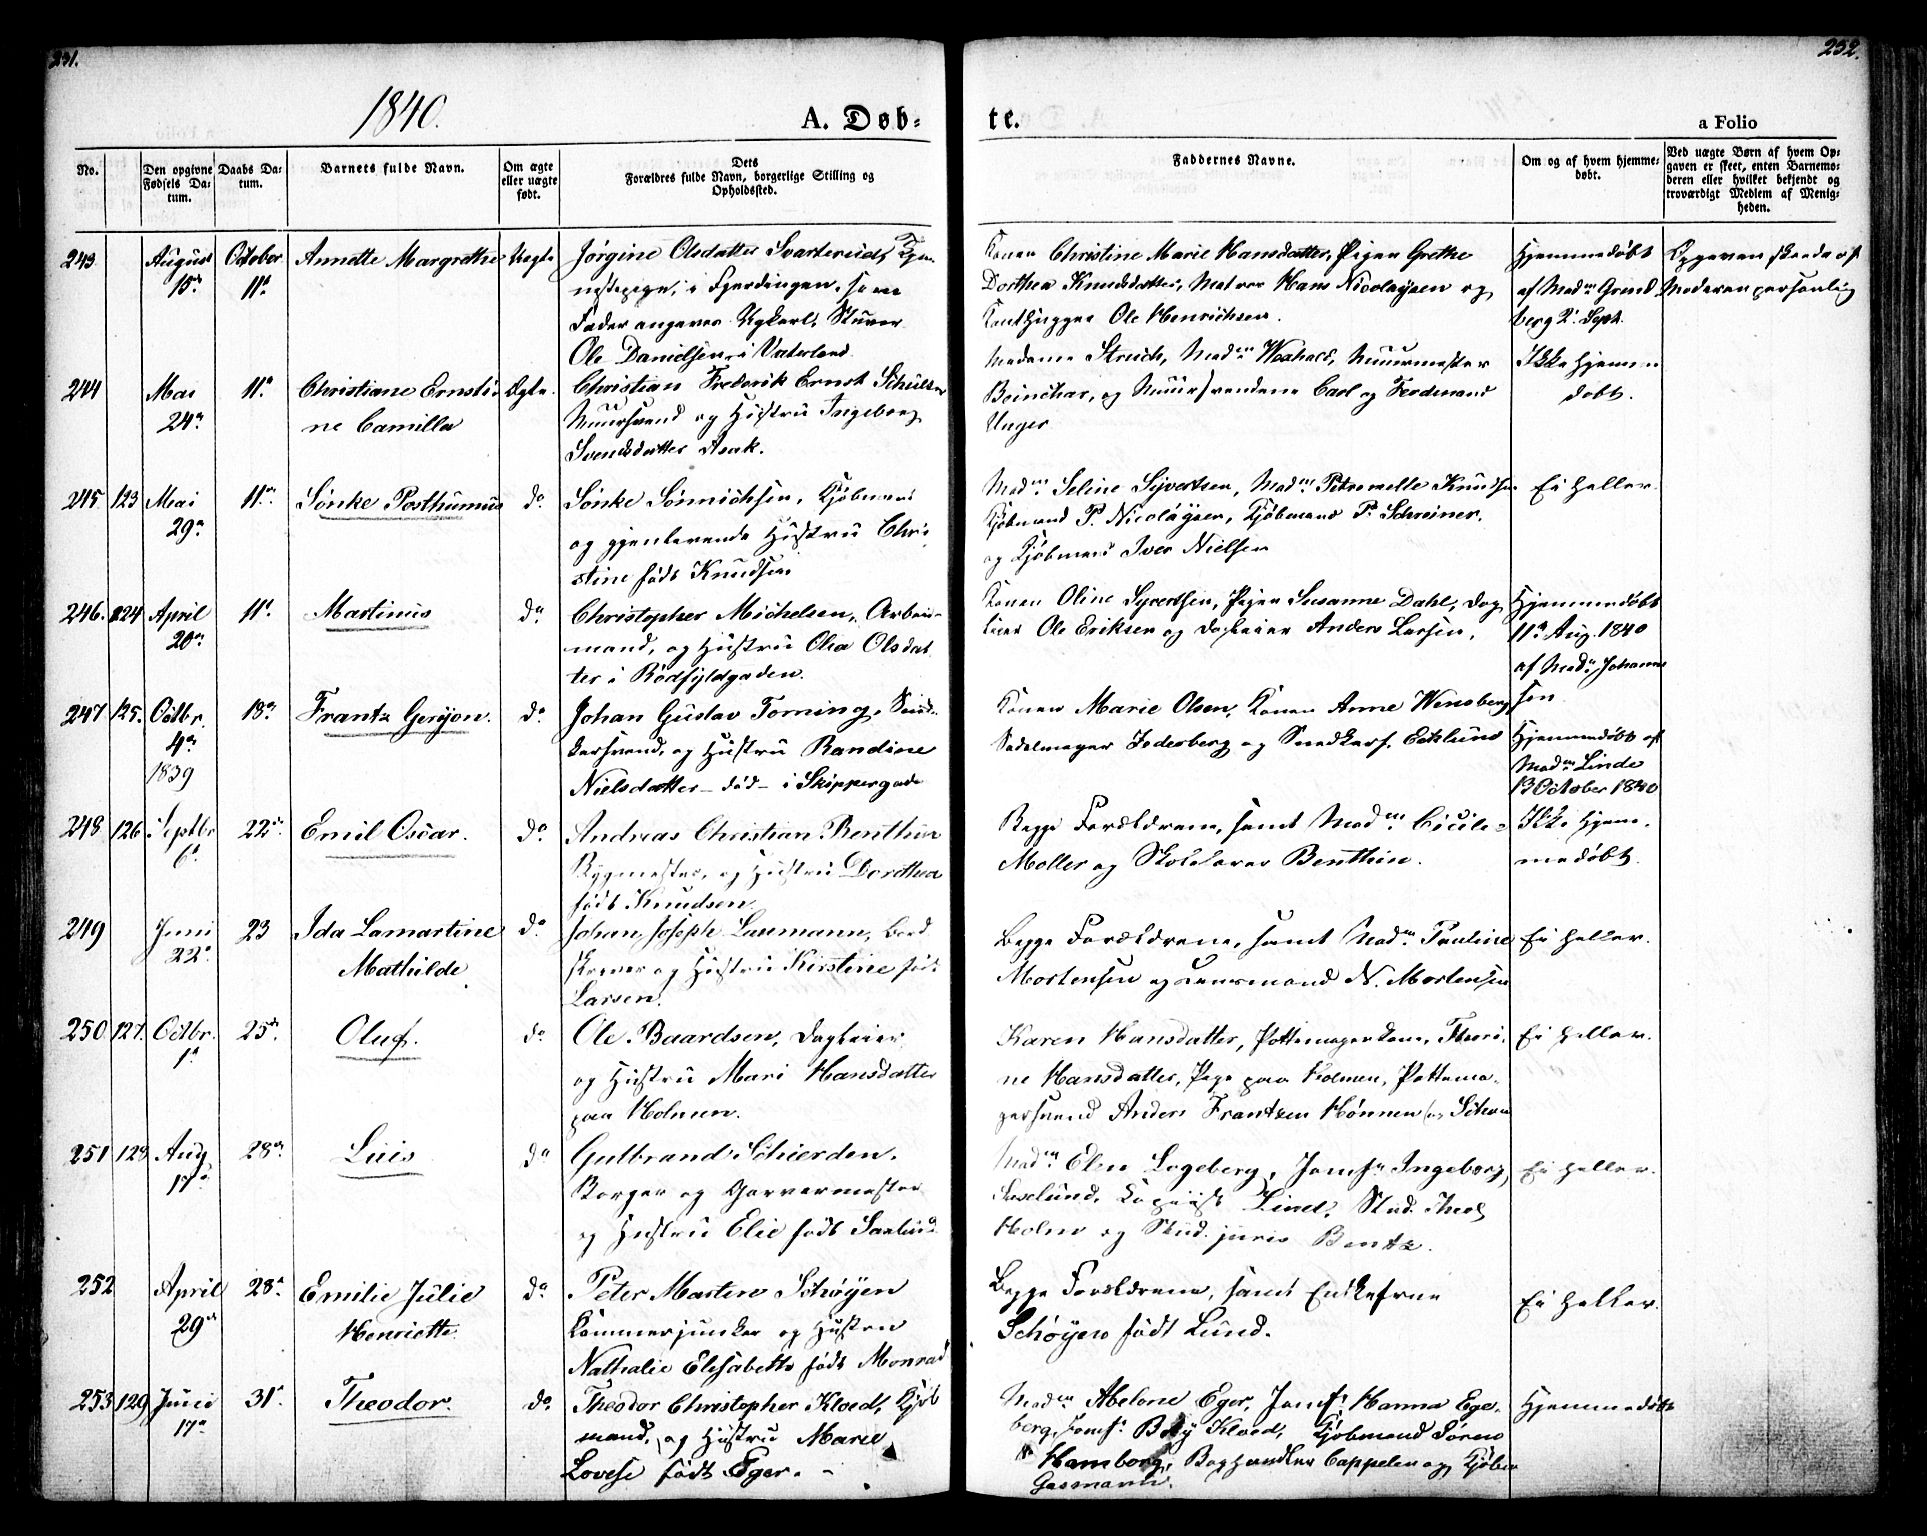 231.
232.
1840.
A. Døb-
te.
a Folio
No.
Den opgivne Fødsels Datum.
Daabs Datum.
Barnets fulde Navn.
Om ægte eller uægte født.
Dets Forældres fulde Navn, borgerlige Stilling og Opholdssted.
Faddernes Navne.
Om og af hvem hjemmedøbt.
Ved uægte Børn af hvem Opgaven er skeet, enten Barnemoderen eller hvilket bekjendt og troværdigt Medlem af Menigheden.
243 August 15de October 11te Annette Margrethe Uægte Jørgine Olsdatter Svarterud, Tjenestepige i Fjerdingen, som
Fader angives Ugkarl, Sturer
Ole Danielsen i Vaterland
Konen Christine Marie Hansdatter, Pigen Grethe
Dorthea Knudsdatter, Matros Hans Nicolaysen og
Ole Henrichsen.
Hjemmedøbt
af Madm Grund
berg 2 Sept.
Opgaven skede af
Moderen personlig
244 Mai 24de 11te Christiane Ernsti-
ne Camilla
Ægte. Christian Frederik Ernst Schultze
Muursvend og Hustru Ingeborg
Svendsdatter Asak.
Madame Strich, Madm Muurmester
og Muursvendene Carl og Ferdinand
Unger
Ikke hjemme
døbt.
245 123 Mai 29de 11te Sønke Posthumus do Sønke Sønnichsen, Kjøbmand
og gjenlevende Hustru Chri
stine født Knudsen
Madm Seline Sivertsen, Madm Petronelle Knudsen
Kjøbmand P. Nicolaysen, Kjøbmand P. Schreiner.
og Kjøbmand Iver Nielsen
Ei heller.
246. 124 April 20de 11te Martinus do Christopher Michelsen, Arbeids-
mand, og Hustru Olea Olsdat
ter i Rødfyldgaden.
Konen Oline Syvertsen, Pigen Susanne Dahl, Dag
leier Ole Eriksen og Dagleier Anders Larsen.
Hjemmedøbt
11te Aug. 1840
af Madm Johanne
sen
247 125. Octbr. 4de 1839 18de Frantz Gerijon. do Johan Gustav Torning, Sned-
kersvend, og Hustru Randine
Nielsdatter - død - i Skippergade
Konen Marie Olsen, Konen Anne Wensberg
Sadelmager Federberg og Snedkers. Ecklund
Hjemmedøbt af
Madm Linde
13 October 1840
248 126 Septbr 6te 22de Emil Oscar. do Andreas Christian Benthin
Bygmester, og Hustru Dorthea
født Knudsen
Begge Forældrene, samt Madm Cicile
Moller og Skolelærer Benthin.
Ikke hjem-
medøbt.
249 Juni 22de 23 Ida Lamartine
Mathilde
do Johan Joseph Laumann, Bord
skriver og Hustru Kirstine født
Larsen.
Begge Forældrene, samt Madm Pauline
Mortensen og Lensmand N. Mortensen
Ei heller.
250 127. Octbr. 1te 25de Oluf. do Ole Baardsen, Dagleier
og Hustru Mari Hansdatter
paa Holmen.
Karen Hansdatter, Pottemagerkone, Thori-
ne Hansdatter, Pige paa Holmen, Pottema-
gersvend Anders Frantzen Hønnen
Ei heller.
251 128 Aug 17de 28de Luis do Gulbrand Schierden.
Borger og Garvermester
og Hustru Elie født
Madm Elen Logeberg, Jomfr Ingeborg
Kopiist Lind, Stud. theol
Holm og Stud. juris Bentz.
Ei heller.
252 April 29de 28de Emilie Julie
Henriette
do Peter Martin Schøyen
Kammerjunker og Hustru
Nathalie Elisabeth født Monrad
Begge Forældrene, samt Enkefrue
Schøyen født Lund.
Ei heller.
253 129 Juni 17de 31te Theodor. do Theodor Christopher Kloed, Kjøb
mand, og Hustru Marie
Lovise født Eger.
Madm Abelone Eger, Jomfr Hanna Ege-
berg, Jomfr Kloed, Kjøbmand Søren
Hamborg, Boghandler Cappelen og Kjøbm
Gasmann.
Hjemmedøbt